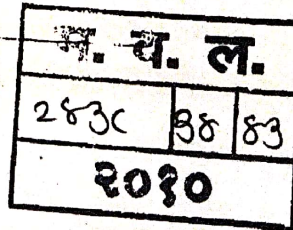 म. च. ल.
२४३८ ३४ ४३
२०१०